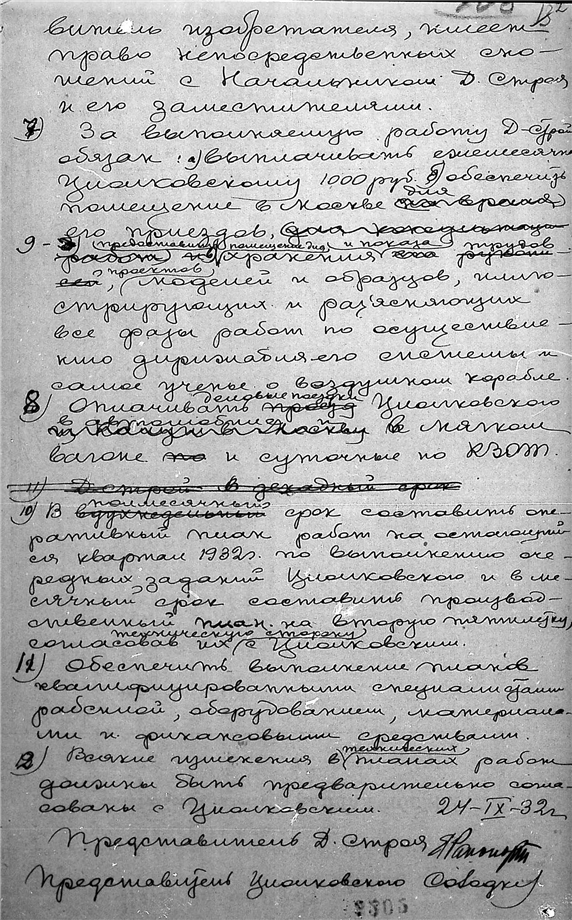 витель изобретателя, имеет
право непосредственных сно-
шений с Начальником Д. Строя
и его заместителями.
7) За выполняемую работу Д-Строй
обязан: а) выплачивать ежемесячно
Циолковскому 1000 руб. б) обеспечить
помещение в Москве для на время
его приездов, для консультации
9- предоставить помещение для и показа трудов
работ хранения его рукопи-
сей, проектов, моделей и образцов, иллю-
стрирующих и раз'ясняющих
все фазы работ по осуществле-
нию дирижабля его системы и
самое ученье о воздушном корабле.
8) Оплачивать деловые поездки проезд Циолковского
в автомобиле и в мягком
из Калуги в Москву
вагоне по и суточные по КЗОТ.
11) Д-строй в декадный срок
10) В полумесячный вдухнедельный срок составить опе-
ративный план работ на остающий-
ся квартал 1932 г. по выполнению оче-
редных заданий Циолковского и в ме-
сячный срок составить производ-
ственный план на вторую пятилетку,
согласовав их техническую сторону с Циолковским.
11) Обеспечить выполнение планов
квалифицированными специалистами
рабсилой, оборудованием, материала-
ми и финансовыми средствами.
12) Всякие изменения в технических планах работ
должны быть предварительно согла-
сованы с Циолковским. 24-IX-32 г.
Представитель Д. Строя
Представитель Циолковского